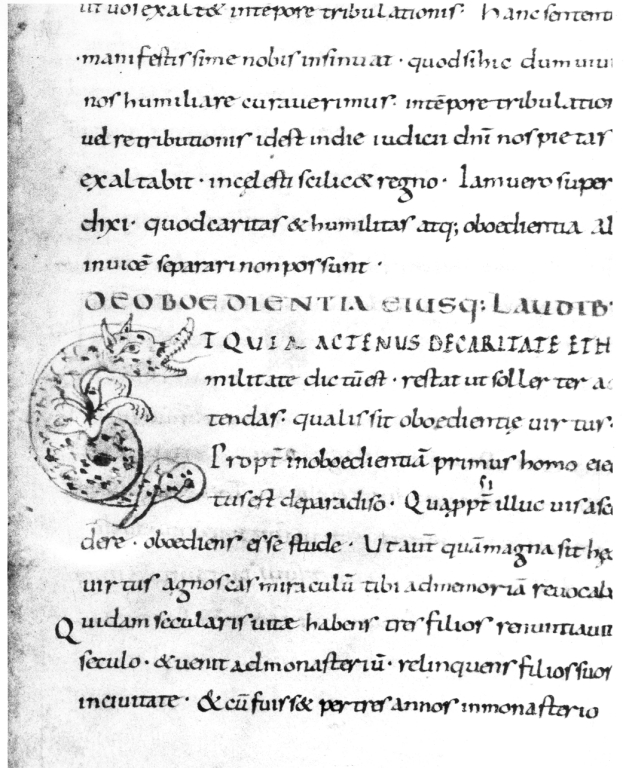 ut uos exaltet intepore tribulationis. Hanc sentent
manifestissime nobis insinuat · quod si hic dum uiui
nos humiliare curauerimus. intēpore tribulation
uel retributionis id est in die iudicii dnī nos pietas
exaltabit · in celesti scilic& regno · Iam uero super
dixi · quod caritas & humilitas atq; oboedientia al
inuicē separari non possunt ·
DE OBOEDIENTIA EIUSQ: LAUDIB'
ET QUIA ACTENUS DE CARITATE ET H
militate dictū est · restat ut sollerter a
tendas · qualis sit oboedientie uirtus.
Propt inoboedientiā primus homo eie
tus est de paradiso · Quapp̄t si illuc uis asc
dere · oboediens esse stude · Ut aut̄ quā magna sit hęc
uirtus agnoscas miraculū tibi ad memoriā reuocab
Quidam secularis uitæ habens tres filios renuntiauit
seculo · & uenit ad monasteriū · relinquens filios suos
in ciuitate · & cū fuiss& per tres annos in monasterio